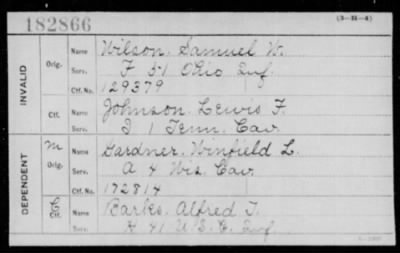 182866
(3-31-4)
INVALID
Orig.
Name Wilson, Samuel W.
Serv. F 51 Ohio Inf.
Ctf. No. 129379
Ctf.
Name Johnson, Lewis F.
Serv. I 1 Tenn. Cav.
DEPENDENT
M
Orig.
Name Gardner, Winfield L.
Serv. A 4 Wis. Cav.
Ctf. No. 172814
C
Ctf.
Name Barks, Alfred T.
Serv. H 41 U.S.C. Inf.